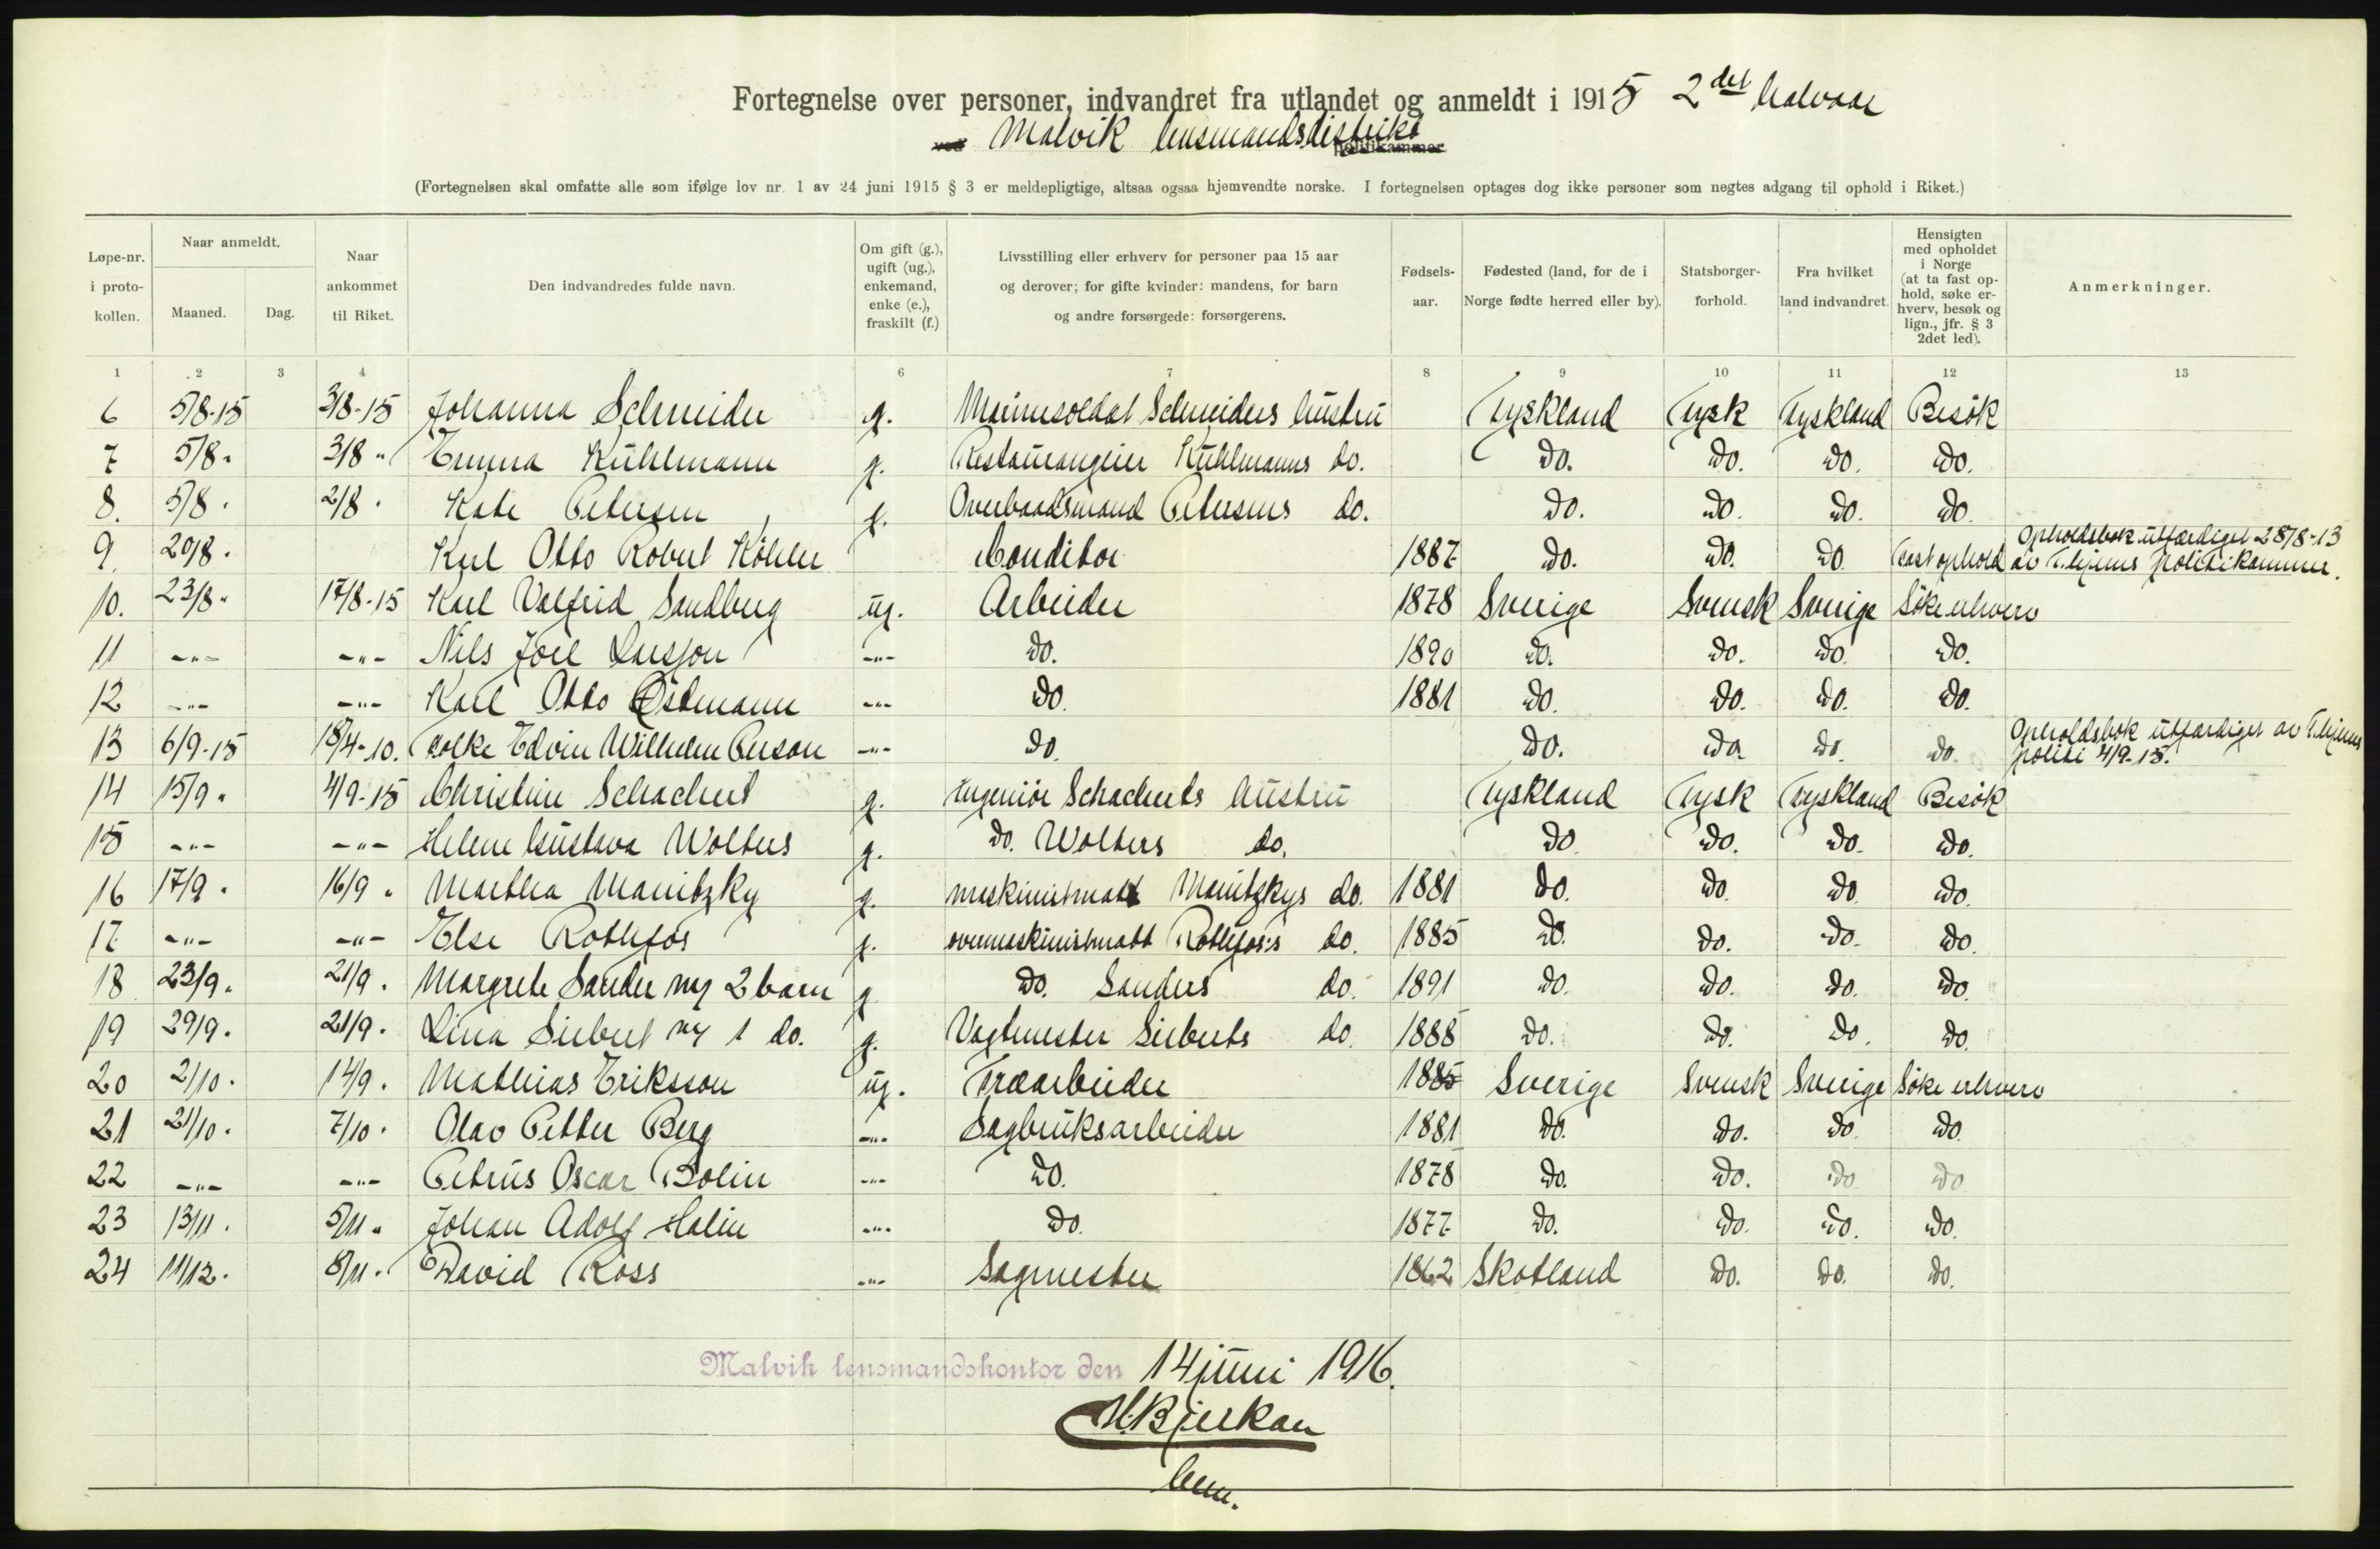 Fortegnelse over personer, indvandret fra utlandet og anmeldt i 1915 2det halvaar
ved Malvik lensmandsdistrikt politikammer
(Fortegnelsen skal omfatte alle som ifølge lov nr. 1 av 24 juni 1915 § 3 er meldepligtige, altsaa ogsaa hjemvendte norske. I fortegnelsen optages dog ikke personer som negtes adgang til ophold i Riket.)
Løpe-nr. i proto-kollen. Naar anmeldt. Maaned. Dag. Naar ankommet til Riket. Den indvandredes fulde navn. Om gift (g.), ugift (ug.), enkemand, enke (e.), fraskilt (f.) Livsstilling eller erhverv for personer paa 15 aar og derover; for gifte kvinder: mandens, for barn og andre forsørgede: forsørgerens. Fødsels-aar. Fødested (land, for de i Norge fødte herred eller by). Statsborger-forhold. Fra hvilket land indvandret. Hensigten med opholdet i Norge (at ta fast op-hold, søke er-hverv, besøk og lign., jfr. § 3 2det led). Anmerkninger.
1 2 3 4 6 7 8 9 10 11 12 13
6 5/8-15 3/8-15 Johanna Schneider g. Marinesoldat Schneiders hustru Tyskland Tysk Tyskland Besök
7 5/8 " 3/8 " Emma Kühlmann g. Restauranteier Kühlmanns do. do. do. do. do.
8. 5/8 " 2/8 " Kate Petersen g. Overbaadsmand Petersens do. do. do. do. do.
9. 20/8 " Karl Otto Robert Köhler Conditor 1887 do. do. do. Fast ophold Opholdsbok utfærdiget 28/8-13 av T.hjems politikammer.
10. 23/8 " 17/8-15 Karl Valfrid Sandberg ug. Arbeider 1878 Sverige Svensk Sverige Söke erhverv
11 -"- -"- Nils Joel Larsson -"- do. 1890 do. do. do. do.
12 -"- -"- Karl Otto Östmann -"- do. 1881 do. do. do. do.
13 6/9-15 18/4-10. Folke Edvin Wilhelm Person -"- do. do. do. do. do. Opholdsbok utfærdiget av T.hjems politi 4/9-15.
14 15/9 " 4/9-15 Christine Schachert g. Ingeniör Schacherts hustru Tyskland Tysk Tyskland Besök
15 -"- -"- Helene Gustava Wolters g. do. Wolters do. do. do. do. do.
16 17/9 " 16/9 " Martha Manitzky g. maskinistmatt Manitzkys do. 1881 do. do. do. do.
17 -"- -"- Else Rothfos g. overmaskinistmatt Rothfos's do. 1885 do. do. do. do.
18 23/9 " 21/9 " Margrete Sander m/ 2 barn g. do. Sanders do. 1891 do. do. do. do.
19 29/9 " 21/9 " Lina Siebert m/ 1 do. g. Vagtmester Sieberts do. 1888 do. do. do. do.
20 2/10 " 14/9 " Mathias Eriksson ug. Træarbeider 1885 Sverige Svensk Sverige Söke erhverv
21 21/10 " 7/10 " Olav Petter Berg -"- Sagbruksarbeider 1881 do. do. do. do.
22 -"- -"- Petrus Oscar Bolin -"- do. 1878 do. do. do. do.
23 13/11 " 5/11 " Johan Adolf Halin -"- do. 1877 do. do. do. do.
24 11/12 " 8/11 " David Ross -"- Sagmester 1862 Skotland do. do. do.
Malvik lensmandskontor den 14 juni 1916.
M. Bjerkan
lensm.